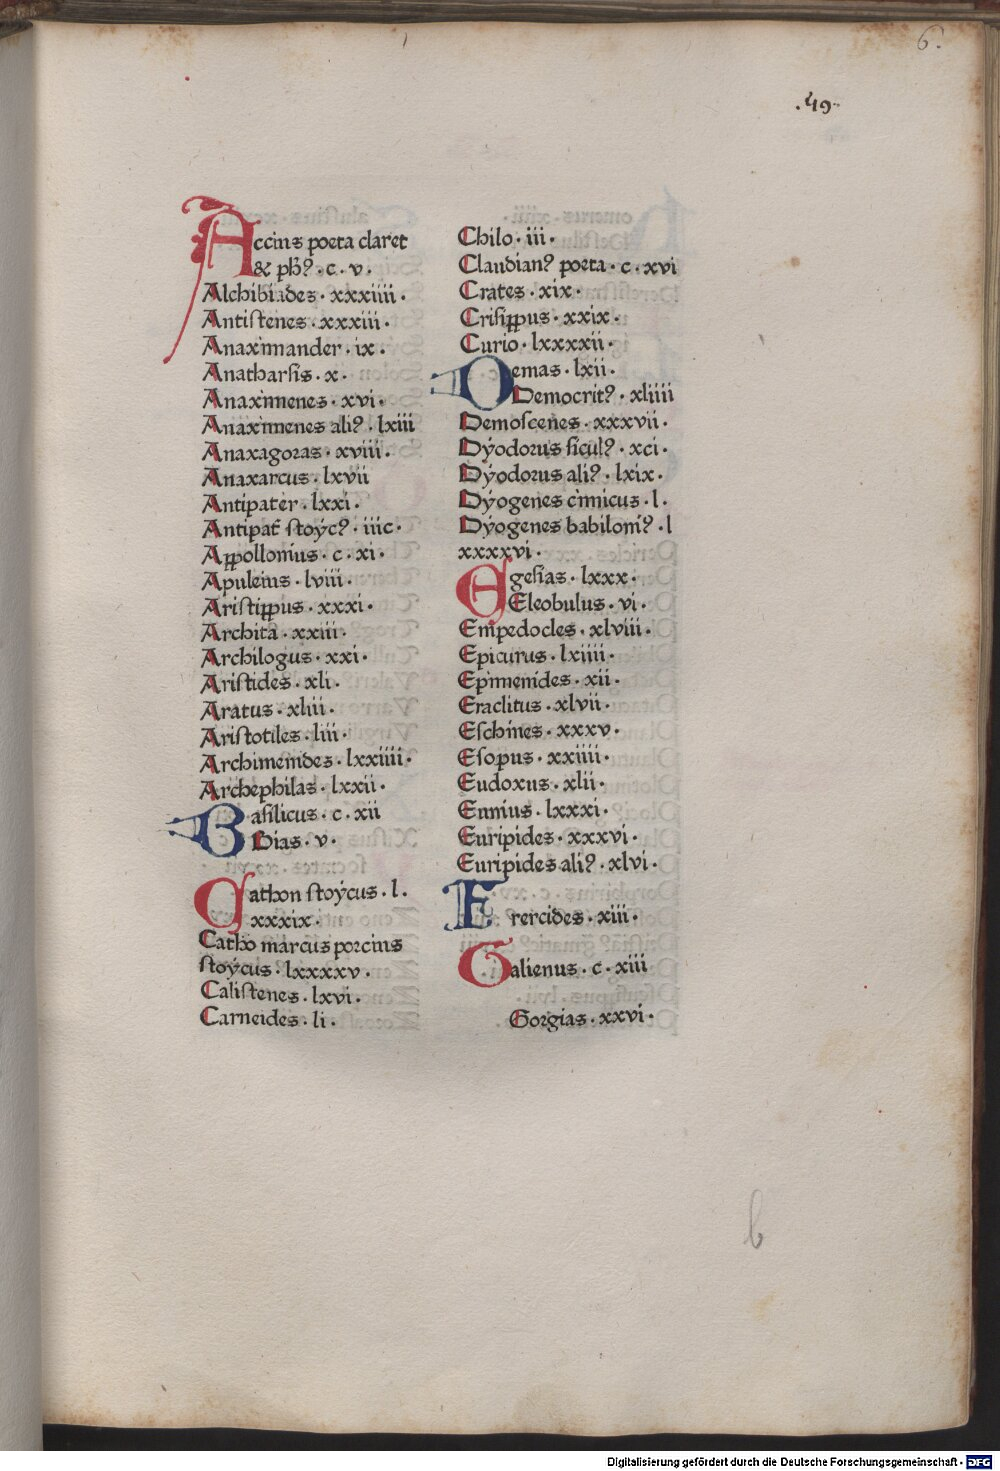 6.
.49.
Accius poeta claret
& ph? · c · v ·
Alchibiades · xxxiiii ·
Antistenes · xxxiii ·
Anaximander · ix ·
Anatharsis · x ·
Anaximenes · xvi ·
Anaximenes ali? · lxiii
Anaxagoras · xviii ·
Anaxarcus · lxvii
Antipater · lxxi ·
Antipat̄ stoyc? · iiic ·
Appollonius · c · xi ·
Apuleius · lviii ·
Aristippus · xxxi ·
Archita · xxiii ·
Archilogus · xxi ·
Aristides · xli ·
Aratus · xliii ·
Aristotiles · liii ·
Archimenides · lxxiiii ·
Archephilas · lxxii ·
Basilicus · c · xii
Bias · v ·
Cathon stoycus · l ·
xxxix ·
Catho marcus porcius
stoycus · lxxxxv ·
Calistenes · lxvi ·
Carneides · li ·
Chilo · iii ·
Claudian? poeta · c · xvi
Crates · xix ·
Crisippus · xxix ·
Curio · lxxxxii ·
Demas · lxii ·
Democrit? · xliiii
Demoscenes · xxxvii ·
Dyodorus sicul? · xci ·
Dyodorus ali? · lxix ·
Dyogenes cinicus · l ·
Dyogenes babiloni? · l
xxxxvi ·
Egesias · lxxx ·
Eleobulus · vi ·
Empedocles · xlviii ·
Epicurus · lxiiii ·
Epimenides · xii ·
Eraclitus · xlvii ·
Eschines · xxxv ·
Esopus · xxiiii ·
Eudoxus · xlii ·
Ennius · lxxxi ·
Euripides · xxxvi ·
Euripides ali? · xlvi ·
Frercides · xiii ·
Galienus · c · xiii
Gorgias · xxvi ·
b
Digitalisierung gefördert durch die Deutsche Forschungsgemeinschaft - DFG